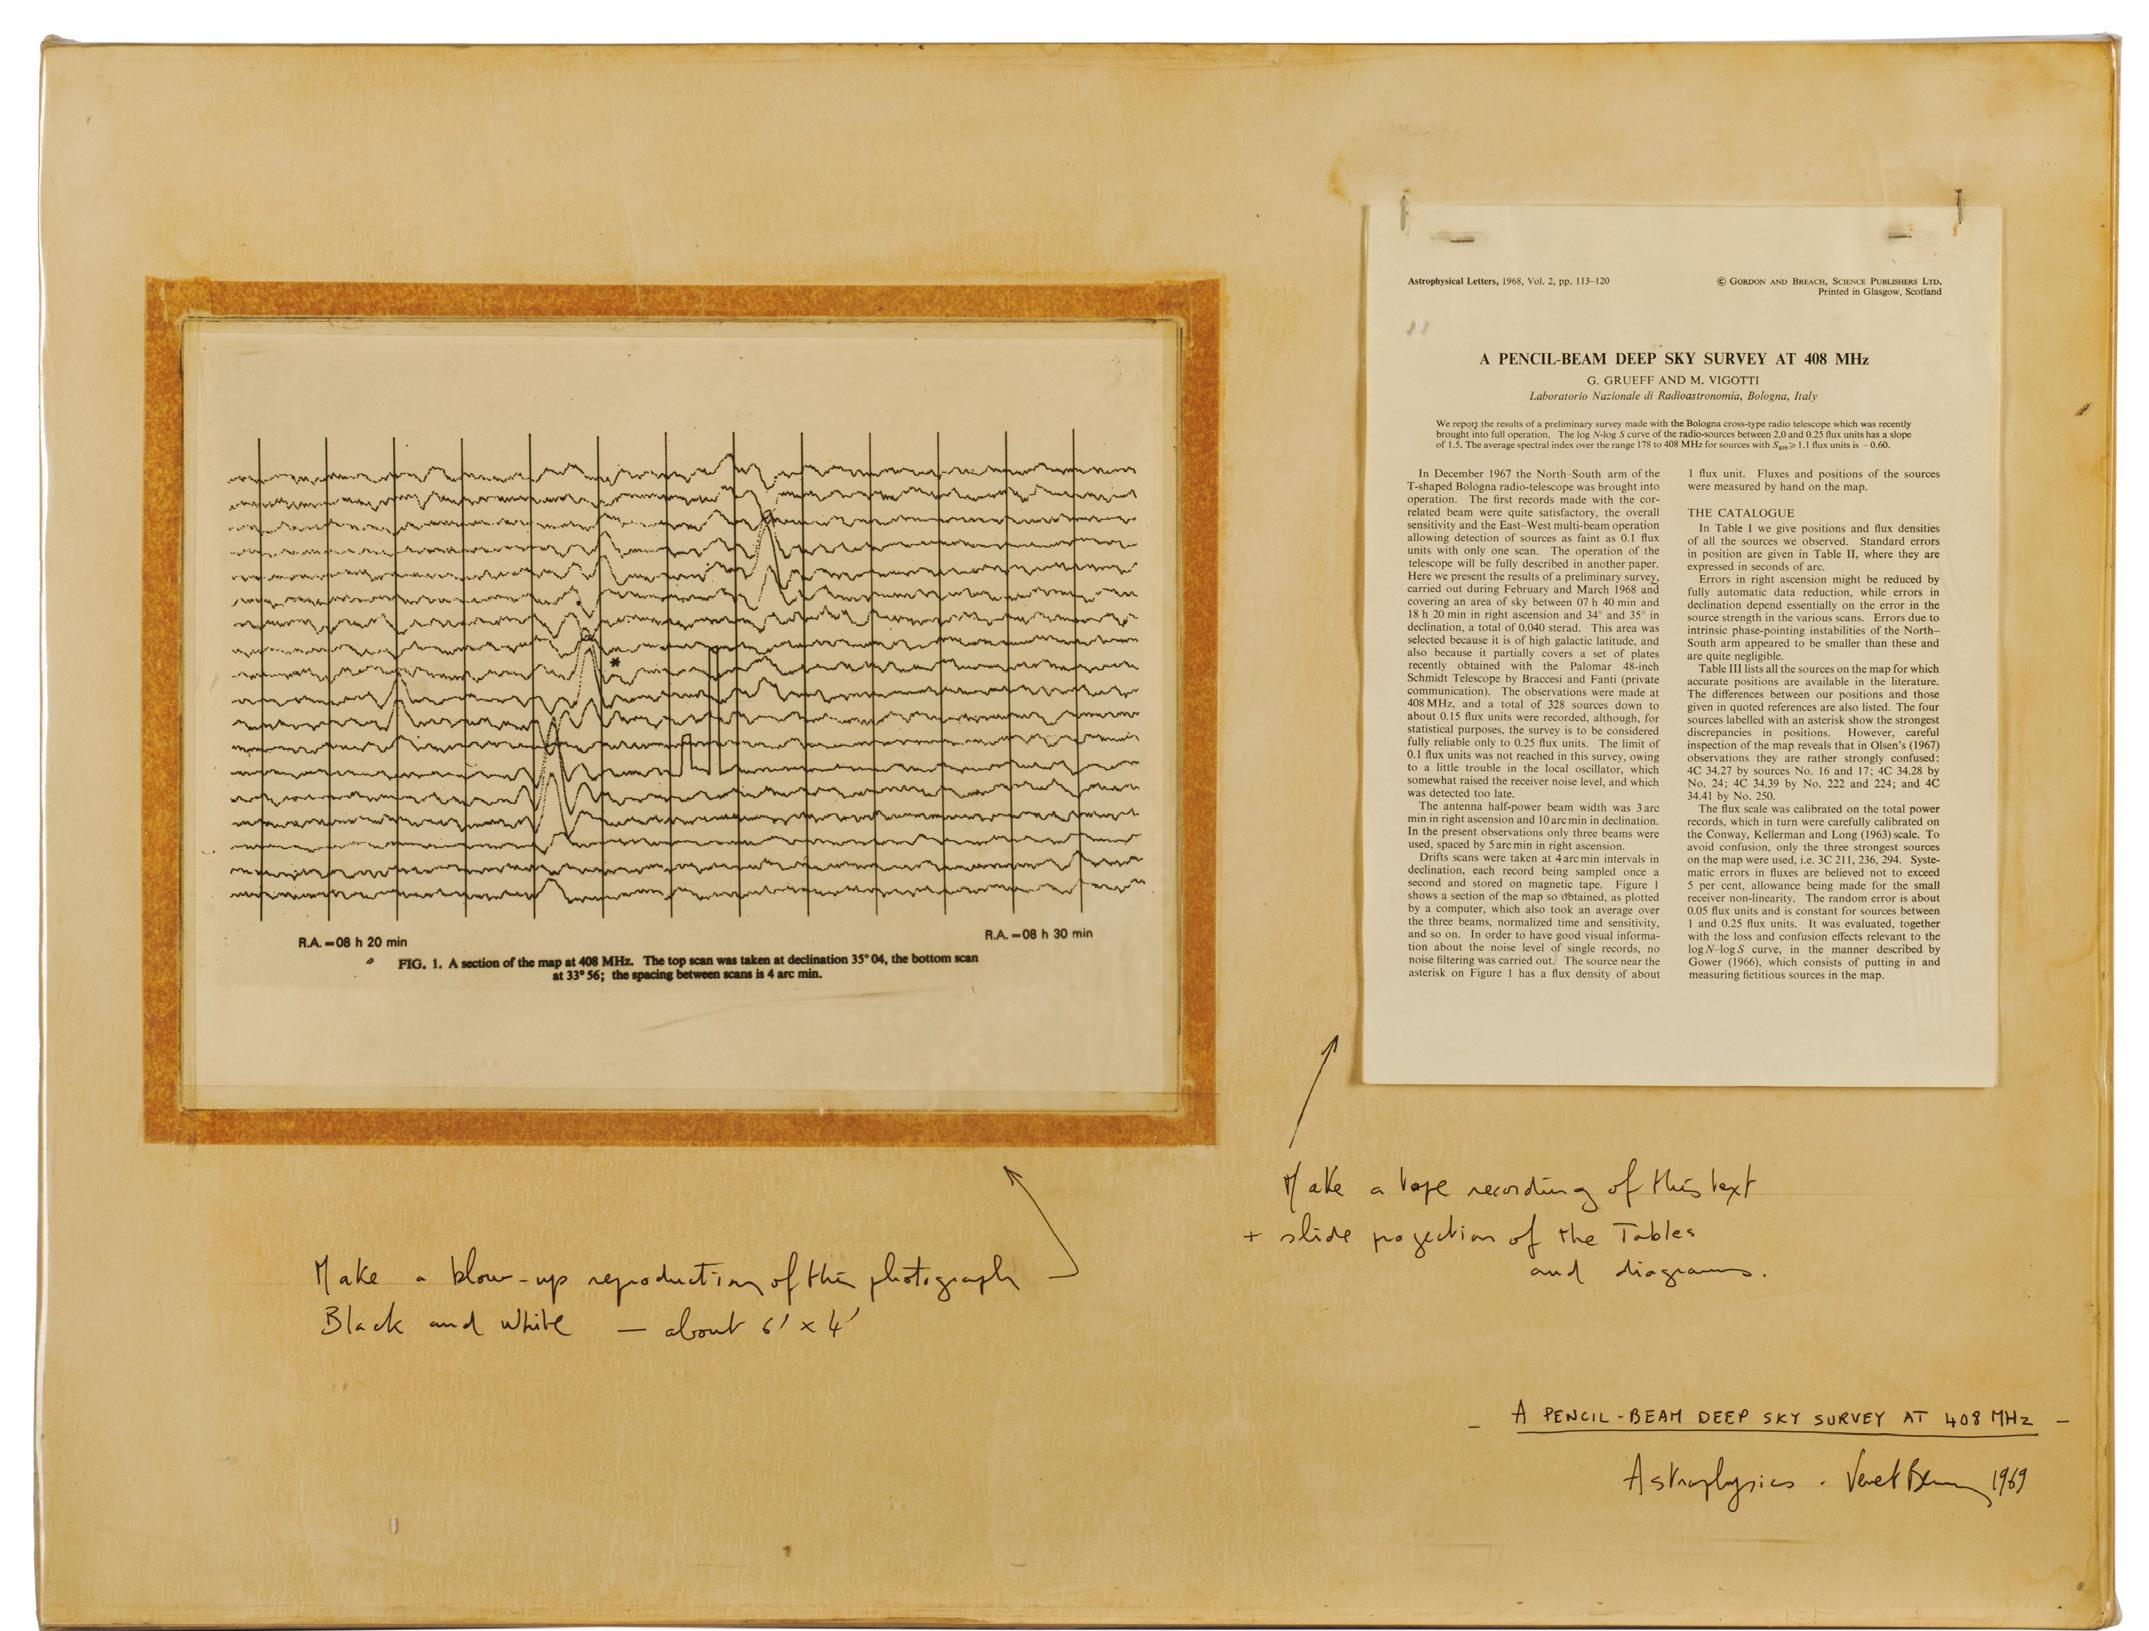 R.A. = 08 h 20 min
R.A. = 08 h 30 min
FIG. 1. A section of the map at 408 MHz. The top scan was taken at declination 35° 04, the bottom scan
at 33° 56; the spacing between scans is 4 arc min.
Make a blow-up reproduction of this photograph
Black and white — about 6' x 4'
Astrophysical Letters, 1968, Vol. 2, pp. 113–120
© GORDON AND BREACH, SCIENCE PUBLISHERS LTD.
Printed in Glasgow, Scotland
A PENCIL-BEAM DEEP SKY SURVEY AT 408 MHz
G. GRUEFF AND M. VIGOTTI
Laboratorio Nazionale di Radioastronomia, Bologna, Italy
We report the results of a preliminary survey made with the Bologna cross-type radio telescope which was recently
brought into full operation. The log N-log S curve of the radio-sources between 2.0 and 0.25 flux units has a slope
of 1.5. The average spectral index over the range 178 to 408 MHz for sources with S₄₀₈ ≥ 1.1 flux units is −0.60.
In December 1967 the North–South arm of the
T-shaped Bologna radio-telescope was brought into
operation. The first records made with the cor-
related beam were quite satisfactory, the overall
sensitivity and the East–West multi-beam operation
allowing detection of sources as faint as 0.1 flux
units with only one scan. The operation of the
telescope will be fully described in another paper.
Here we present the results of a preliminary survey,
carried out during February and March 1968 and
covering an area of sky between 07 h 40 min and
18 h 20 min in right ascension and 34° and 35° in
declination, a total of 0.040 sterad. This area was
selected because it is of high galactic latitude, and
also because it partially covers a set of plates
recently obtained with the Palomar 48-inch
Schmidt Telescope by Braccesi and Fanti (private
communication). The observations were made at
408 MHz, and a total of 328 sources down to
about 0.15 flux units were recorded, although, for
statistical purposes, the survey is to be considered
fully reliable only to 0.25 flux units. The limit of
0.1 flux units was not reached in this survey, owing
to a little trouble in the local oscillator, which
somewhat raised the receiver noise level, and which
was detected too late.
The antenna half-power beam width was 3 arc
min in right ascension and 10 arc min in declination.
In the present observations only three beams were
used, spaced by 5 arc min in right ascension.
Drifts scans were taken at 4 arc min intervals in
declination, each record being sampled once a
second and stored on magnetic tape. Figure 1
shows a section of the map so obtained, as plotted
by a computer, which also took an average over
the three beams, normalized time and sensitivity,
and so on. In order to have good visual informa-
tion about the noise level of single records, no
noise filtering was carried out. The source near the
asterisk on Figure 1 has a flux density of about
1 flux unit. Fluxes and positions of the sources
were measured by hand on the map.
THE CATALOGUE
In Table I we give positions and flux densities
of all the sources we observed. Standard errors
in position are given in Table II, where they are
expressed in seconds of arc.
Errors in right ascension might be reduced by
fully automatic data reduction, while errors in
declination depend essentially on the error in the
source strength in the various scans. Errors due to
intrinsic phase-pointing instabilities of the North–
South arm appeared to be smaller than these and
are quite negligible.
Table III lists all the sources on the map for which
accurate positions are available in the literature.
The differences between our positions and those
given in quoted references are also listed. The four
sources labelled with an asterisk show the strongest
discrepancies in positions. However, careful
inspection of the map reveals that in Olsen's (1967)
observations they are rather strongly confused:
4C 34.27 by sources No. 16 and 17; 4C 34.28 by
No. 24; 4C 34.39 by No. 222 and 224; and 4C
34.41 by No. 250.
The flux scale was calibrated on the total power
records, which in turn were carefully calibrated on
the Conway, Kellerman and Long (1963) scale. To
avoid confusion, only the three strongest sources
on the map were used, i.e. 3C 211, 236, 294. Syste-
matic errors in fluxes are believed not to exceed
5 per cent, allowance being made for the small
receiver non-linearity. The random error is about
0.05 flux units and is constant for sources between
1 and 0.25 flux units. It was evaluated, together
with the loss and confusion effects relevant to the
log N–log S curve, in the manner described by
Gower (1966), which consists of putting in and
measuring fictitious sources in the map.
Make a tape recording of this text
+ slide projection of the Tables
and diagrams.
— A PENCIL-BEAM DEEP SKY SURVEY AT 408 MHz —
Astrophysics. Venet 1969